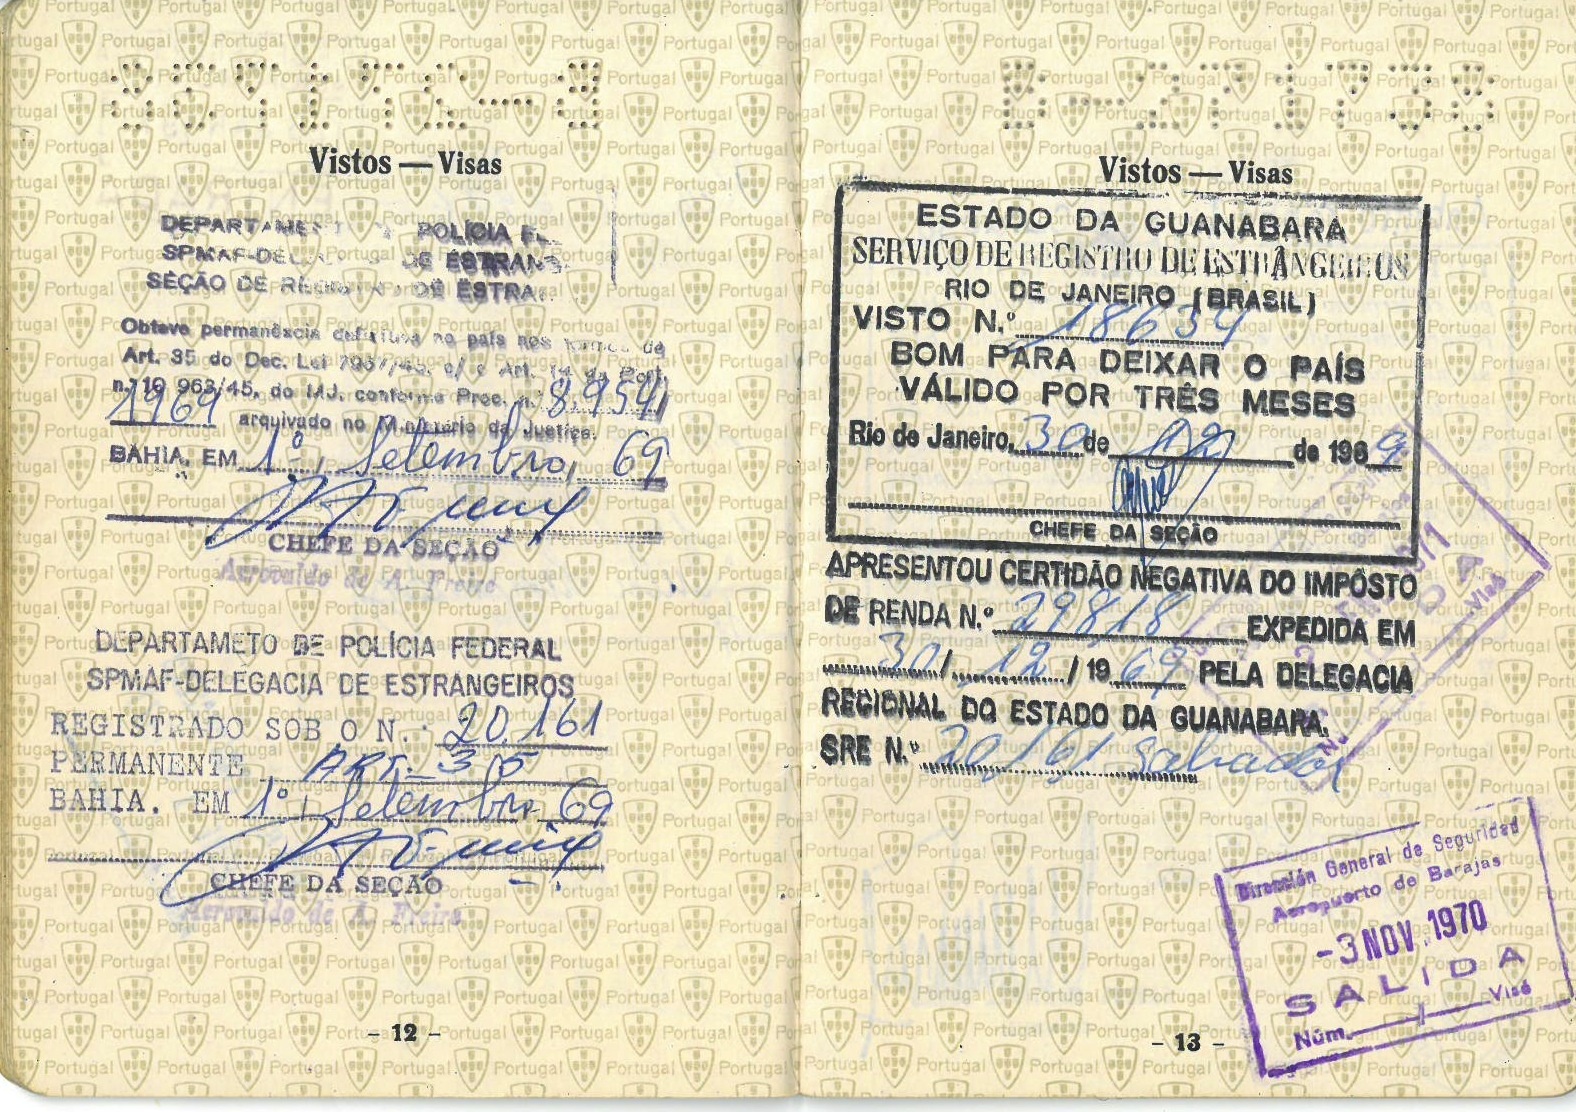 Vistos — Visas
POLÍCIA
SPMAF-
SEÇÃO DE
Obteve permanência definitiva no país nos termos de
Art. 35 do Dec. Lei 7967/45, c/ c Art. 14 da Port.
n.º 10 963/45, do MJ. conforme Proc. n.º 8.954/
1969 arquivado no Ministério da Justiça.
BAHIA, EM 1º, Setembro, 69
CHEFE DA SEÇÃO
Aerovaldo de A. Freire
DEPARTAMETO DE POLÍCIA FEDERAL
SPMAF-DELEGACIA DE ESTRANGEIROS
REGISTRADO SOB O N.: 20.161
PERMANENTE ART. 35
BAHIA. EM 1º, Setembro 69
CHEFE DA SEÇÃO
Aerovaldo de A. Freire
- 12 -
B-271738
Vistos — Visas
ESTADO DA GUANABARA
SERVIÇO DE REGISTRO DE ESTRÂNGEIROS
RIO DE JANEIRO (BRASIL)
VISTO N.º 18634
BOM PARA DEIXAR O PAÍS
VÁLIDO POR TRÊS MESES
Rio de Janeiro, 30 de 12 de 1969
CHEFE DA SEÇÃO
APRESENTOU CERTIDÃO NEGATIVA DO IMPÔSTO
DE RENDA N.º 29818 EXPEDIDA EM
30/12/1969 PELA DELEGACIA
REGIONAL DO ESTADO DA GUANABARA.
SRE N.º 20161 Salvador
Dirección General de Seguridad
Aeropuerto de Barajas
-3 NOV. 1970
SALIDA
Núm. / Visé
- 13 -